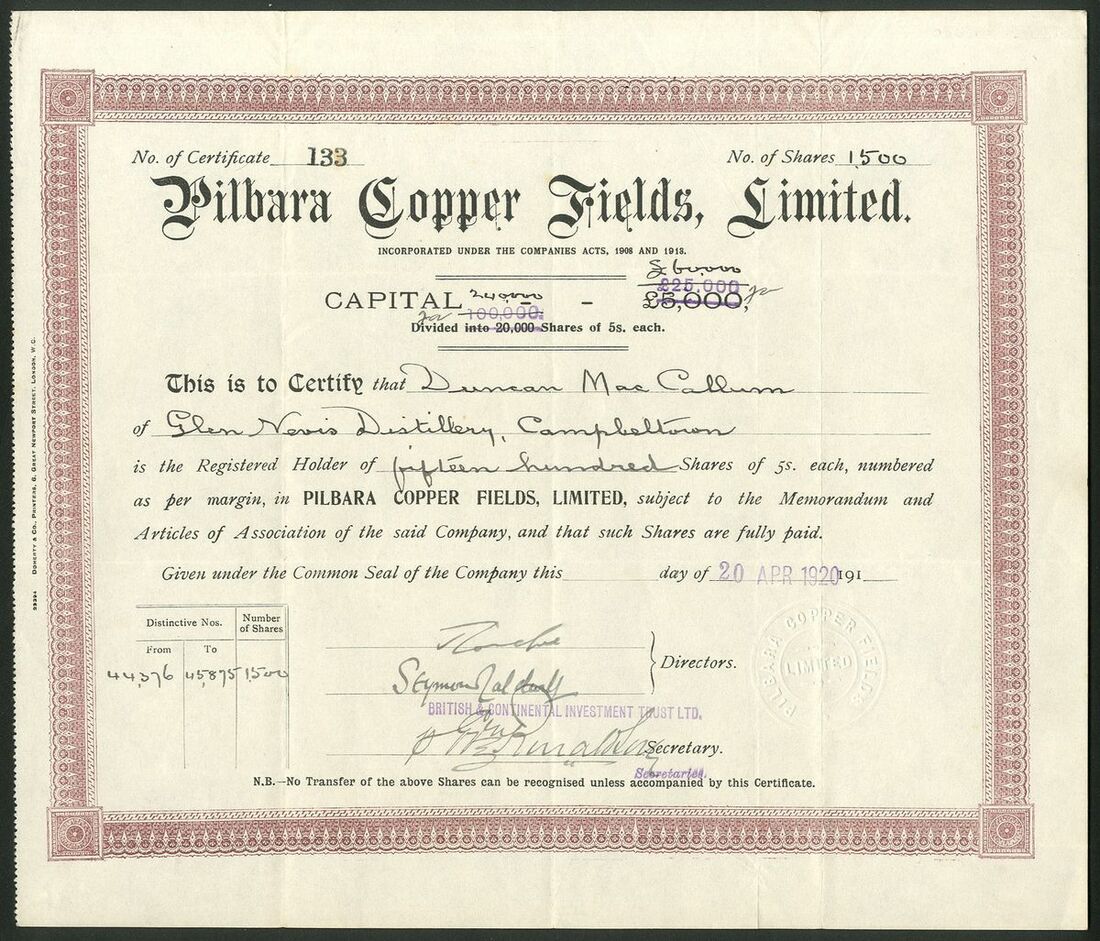 No. of Certificate 133 No. of Shares 1500
Pilbara Copper Fields, Limited.
INCORPORATED UNDER THE COMPANIES ACTS, 1908 AND 1913.
£60,000
£25,000
CAPITAL 240,000 - - £5,000,
100,000.
Divided into 20,000 Shares of 5s. each.
This is to Certify that Duncan Mac Callum
of Glen Nevis Distillery, Campbeltown
is the Registered Holder of fifteen hundred Shares of 5s. each, numbered
as per margin, in PILBARA COPPER FIELDS, LIMITED, subject to the Memorandum and
Articles of Association of the said Company, and that such Shares are fully paid.
Given under the Common Seal of the Company this day of 20 APR 1920 191
Distinctive Nos. Number of Shares
From To
44,376 45,875 1,500
Directors.
Seymour
BRITISH & CONTINENTAL INVESTMENT TRUST LTD.
Secretary.
Secretaries.
N.B.—No Transfer of the above Shares can be recognised unless accompanied by this Certificate.
PILBARA COPPER FIELDS
LIMITED
29394 DOHERTY & CO., PRINTERS, 6, GREAT NEWPORT STREET, LONDON, W.C.